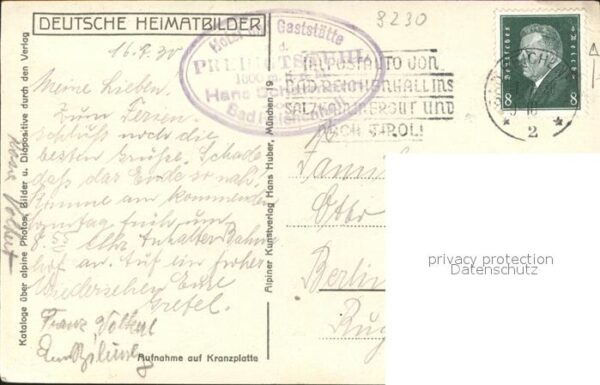 DEUTSCHE HEIMATBILDER
16.9.30
Meine Lieben.
Zum Ferien-
schluß noch die
besten Grüße. Schade
daß das Ende so nah!
Komme am kommenden
Sonntag früh um
8.33 Uhr Anhalter Bahn-
hof an. Auf ein frohes
Wiedersehen Eure
Gretel.
Franz Volkert
Aufnahme auf Kranzplatte
Kataloge über alpine Photos, Bilder u. Diapositive durch den Verlag
Alpiner Kunstverlag Hans Huber, München 19
Gaststätte
PREDIGTSTUHL
Hans
Bad Reichenhall
8230
IM POSTAUTO VON
BAD REICHENHALL INS
SALZKAMMERGUT UND
NACH TIROL!
Deutsches Reich
8 8
* 2 *
Otto
Berlin
privacy protection
Datenschutz